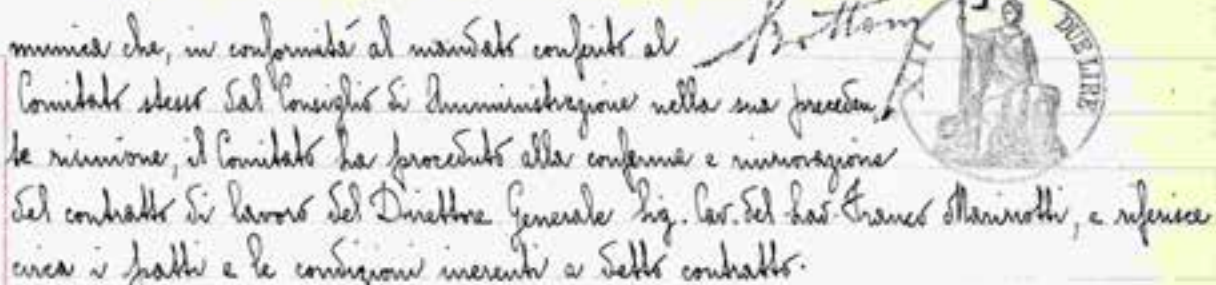 munica che, in conformità al mandato conferito al
Comitato stesso dal Consiglio di Amministrazione nella sua preceden,
te riunione, il Comitato ha proceduto alla conferma e rinnovazione
del contratto di lavoro del Direttore Generale Sig. Cav. del Lav. Franco Marinotti, e riferisce
circa i patti e le condizioni inerenti a detto contratto.
DUE LIRE